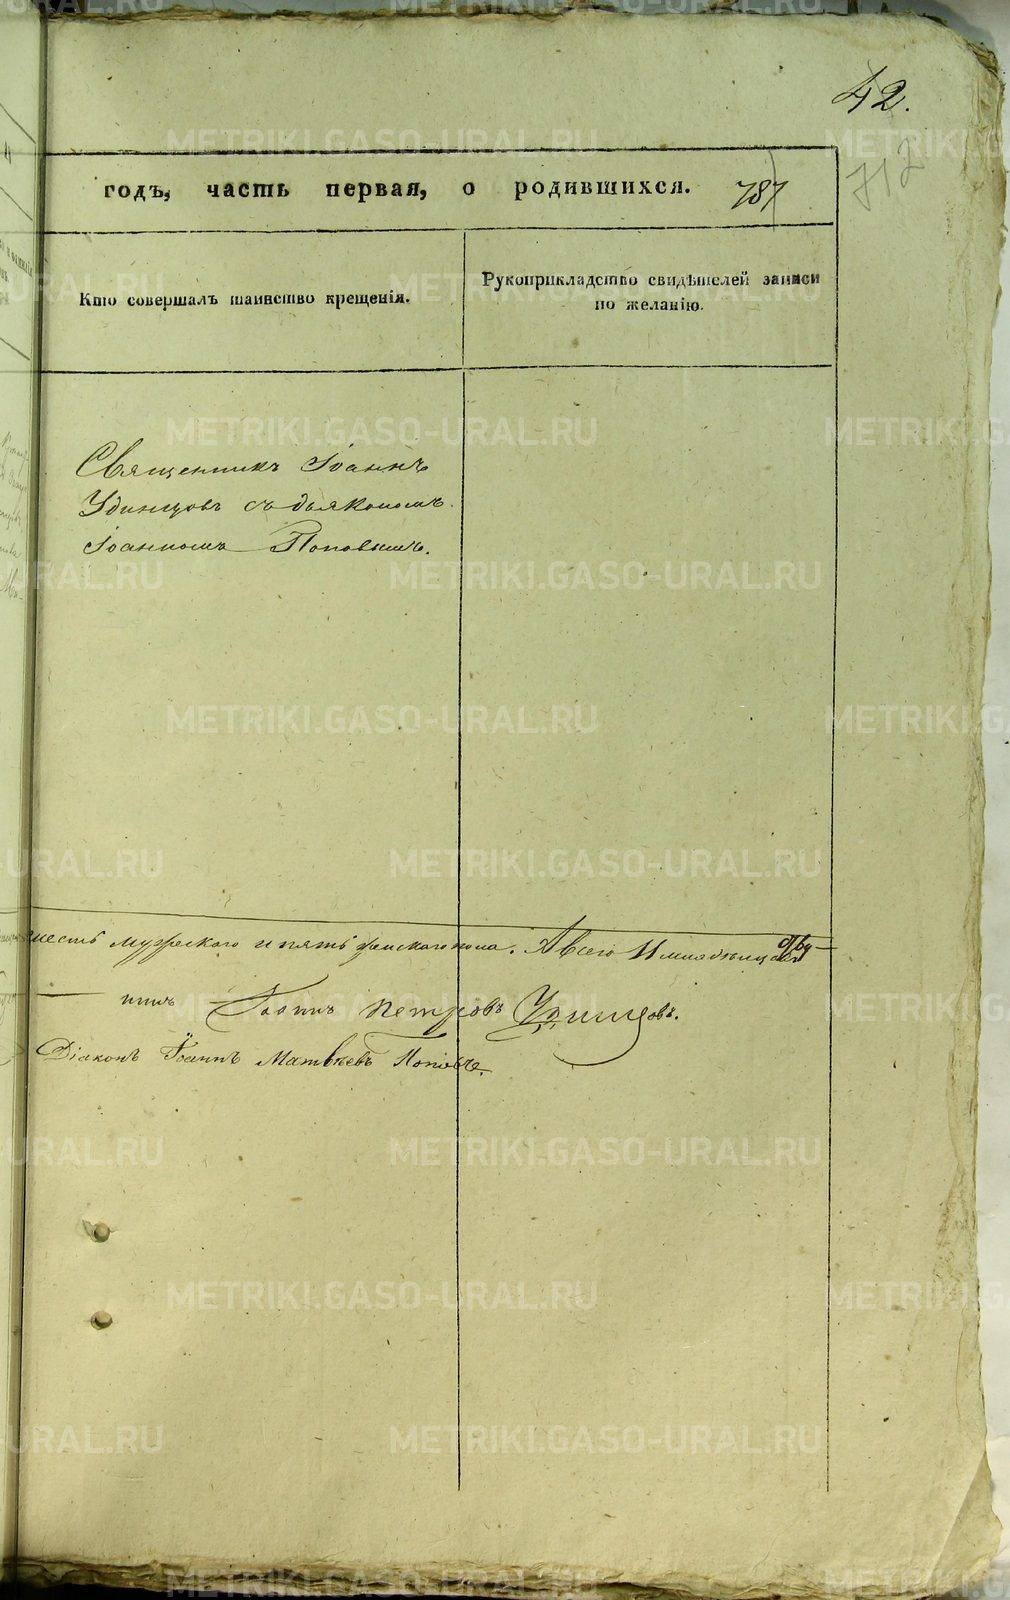 42.
712
годъ, часть первая, о родившихся. 787
Кто совершалъ таинство крещенія.
Рукоприкладство свидѣтелей записи
по желанію.
Священникъ Іоаннъ
Удинцовъ съ дьякономъ
Іоанномъ Поповымъ.
шесть мужеского и пять женского пола. А всего 11 младенцовъ обу-
Іоаннъ Петровъ Удинцовъ.
Діаконъ Іоаннъ Матвѣевъ Поповъ.
METRIKI.GASO-URAL.RU